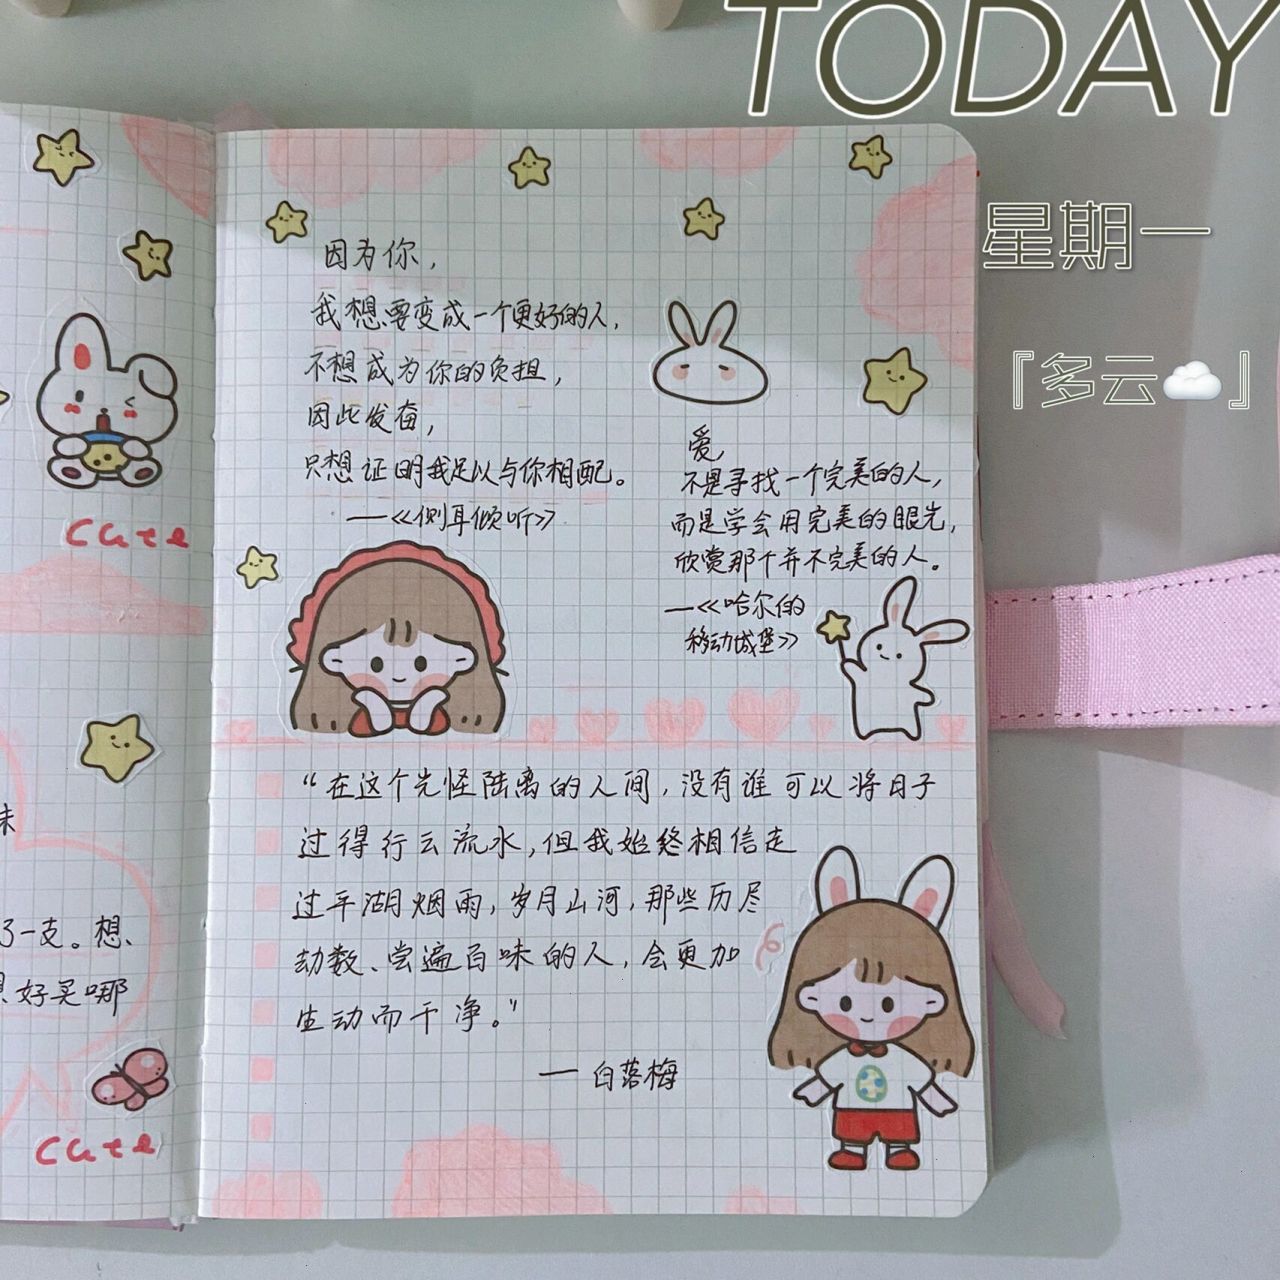 TODAY
星期一
『多云☁️』
因为你，
我想要变成一个更好的人，
不想成为你的负担，
因此发奋，
只想证明我足以与你相配。
——《侧耳倾听》
爱，
不是寻找一个完美的人，
而是学会用完美的眼光，
欣赏那个并不完美的人。
——《哈尔的
移动城堡》
“在这个光怪陆离的人间，没有谁可以将日子
过得行云流水，但我始终相信走
过平湖烟雨，岁月山河，那些历尽
劫数、尝遍百味的人，会更加
生动而干净。”
— 白落梅
cute
味
了一支。想、
好买哪
cute